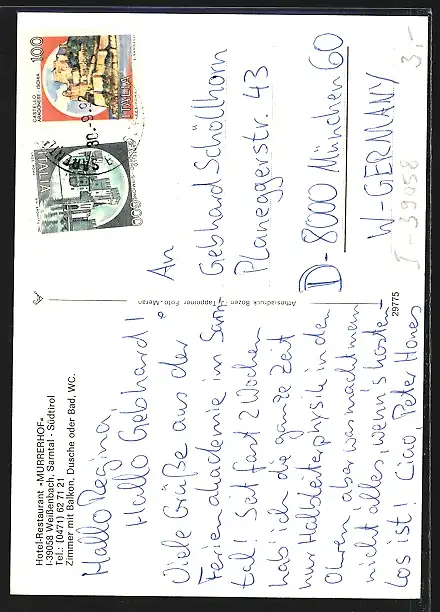 Hotel-Restaurant »MURRERHOF«
I-39058 Weißenbach, Sarntal - Südtirol
Tel.: (0471) 62 71 21
Zimmer mit Balkon, Dusche oder Bad, WC.
Hallo Regina,
Hallo Gebhard!
Viele Grüße aus der
Ferienakademie im Sarn-
tal! Seit fast 2 Wochen
hab ich die ganze Zeit
nur Halbleiterphysik in den
Ohren, aber was macht man
nicht alles, wenn's kosten-
los ist! Ciao, Peter
Athesiadruck Bozen - Tappeiner Foto - Meran
29775
100
CASTELLO
ARAGONESE ISCHIA
ITALIA
ITALIA
600
30.-9.92
An
Gebhard Schöllhorn
Planeggerstr. 43
D-8000 München 60
W-GERMANY
I-39058
3,-